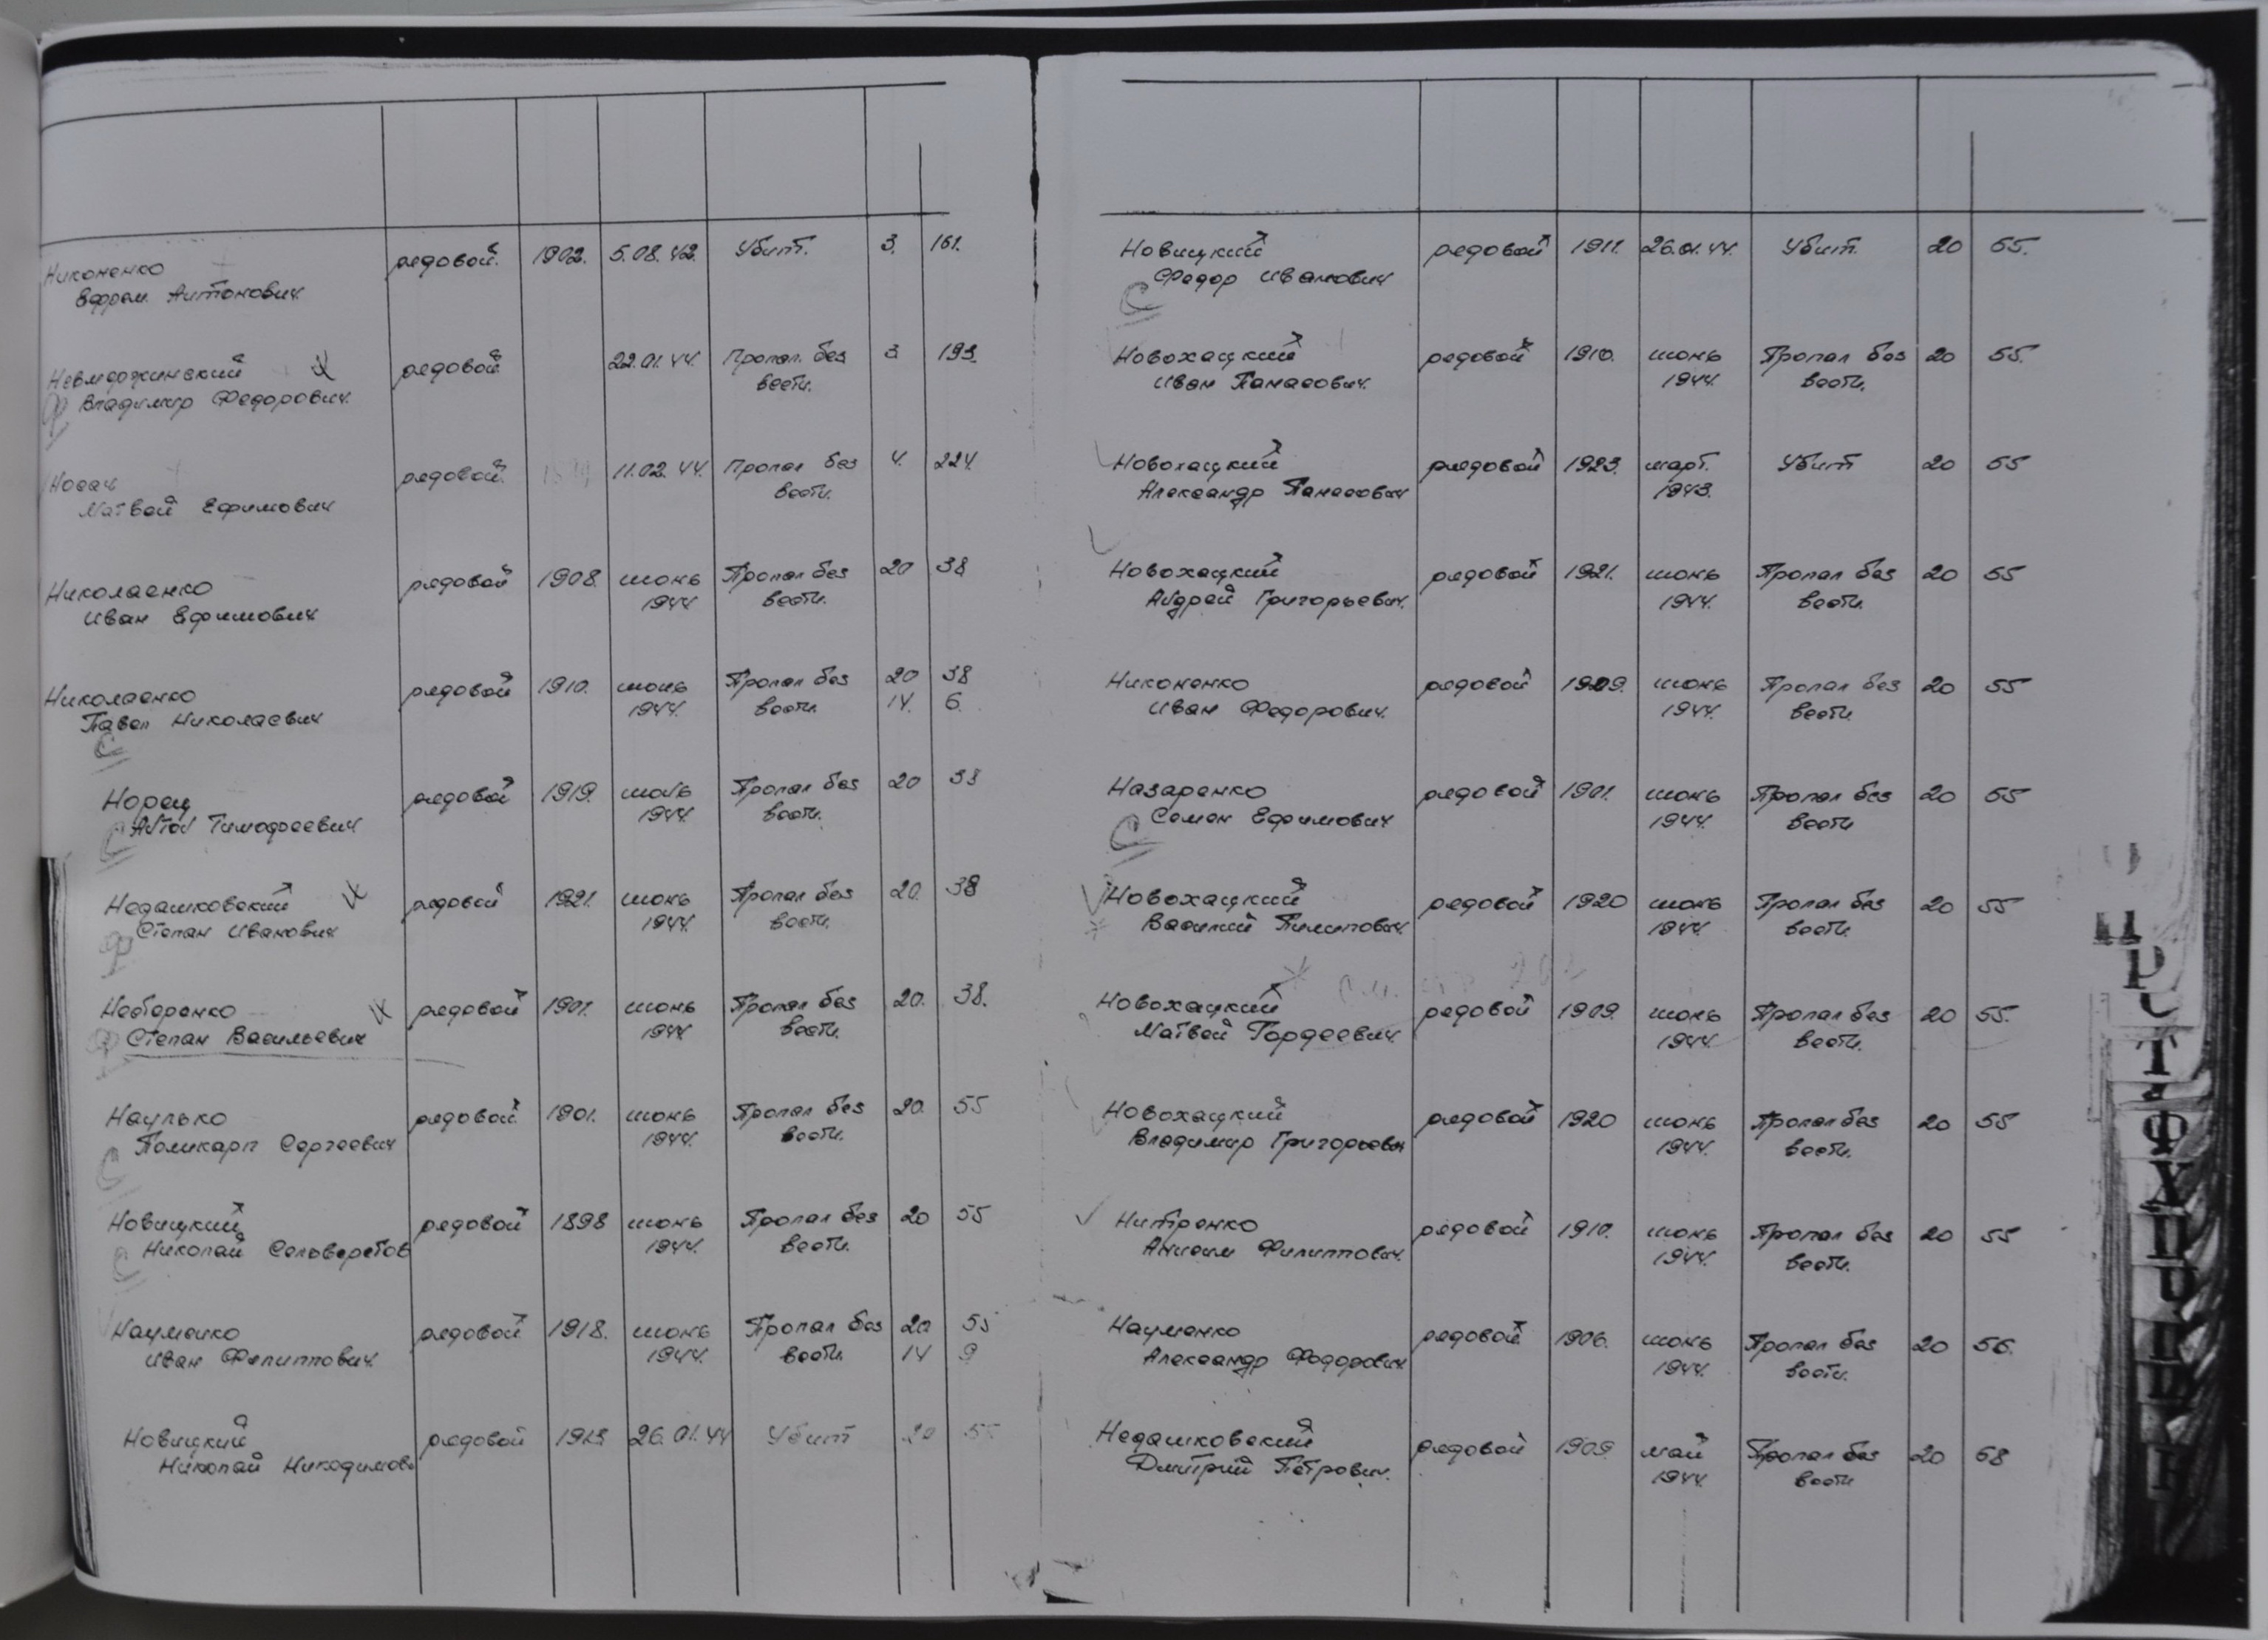 Никоненко рядовой. 1902. 5.08.42. Убит. 3. 161.
Ефрем Антонович.
Невмержинский рядовой 22.01.44. Пропал. без 3 193.
Владимир Федорович. вести.
Носач рядовой. 11.02.44. Пропал без 4. 224.
Матвей Ефимович вести.
Николаенко рядовой 1908. июнь Пропал без 20 38
Иван Ефимович 1944 вести.
Николаенко рядовой 1910. июнь Пропал без 20 38
Павел Николаевич 1944. вести. 14. 6.
Норец рядовой 1919. июнь Пропал без 20 38
Антон Тимофеевич 1944. вести.
Недашковский рядовой 1921. июнь Пропал без 20. 38
Степан Иванович 1944. вести.
Нестеренко рядовой 1901. июнь Пропал без 20. 38.
Степан Васильевич 1944 вести.
Наулько рядовой 1901. июнь Пропал без 20. 55
Поликарп Сергеевич 1944. вести.
Новицкий рядовой 1898 июнь Пропал без 20 55
Николай Сельверстов 1944. вести.
Науменко рядовой 1918. июнь Пропал без 20 55
Иван Филиппович. 1944. вести. 14 9
Новицкий рядовой 26.01.44 Убит 20 55
Николай Никодимов
Новицкий рядовой 1911. 26.01.44. Убит. 20 55.
Федор Иванович
Новохацкий рядовой 1910. июнь Пропал без 20 55.
Иван Панасович. 1944. вести.
Новохацкий рядовой 1923. март. Убит 20 55
Александр Панасович 1943.
Новохацкий рядовой 1921. июнь Пропал без 20 55
Андрей Григорьевич. 1944. вести.
Никоненко рядовой 1909. июнь Пропал без 20 55
Иван Федорович. 1944. вести.
Назаренко рядовой 1901. июнь Пропал без 20 55
Семен Ефимович 1944. вести
Новохацкий рядовой 1920 июнь Пропал без 20 55
Василий Пилипович 1944. вести.
Новохацкий рядовой 1909. июнь Пропал без 20 55.
Матвей Гордеевич 1944. вести.
Новохацкий рядовой 1920 июнь Пропал без 20 55
Владимир Григорьевич 1944. вести.
Нитренко рядовой 1910. июнь Пропал без 20 55
Анисим Филиппович. 1944. вести.
Науменко рядовой 1906. июнь Пропал без 20 56.
Александр Федорович 1944. вести.
Недашковский рядовой 1909 май Пропал без 20 68
Дмитрий Петрович. 1944. вести
Ц
Р
С
Т
Ф
Х